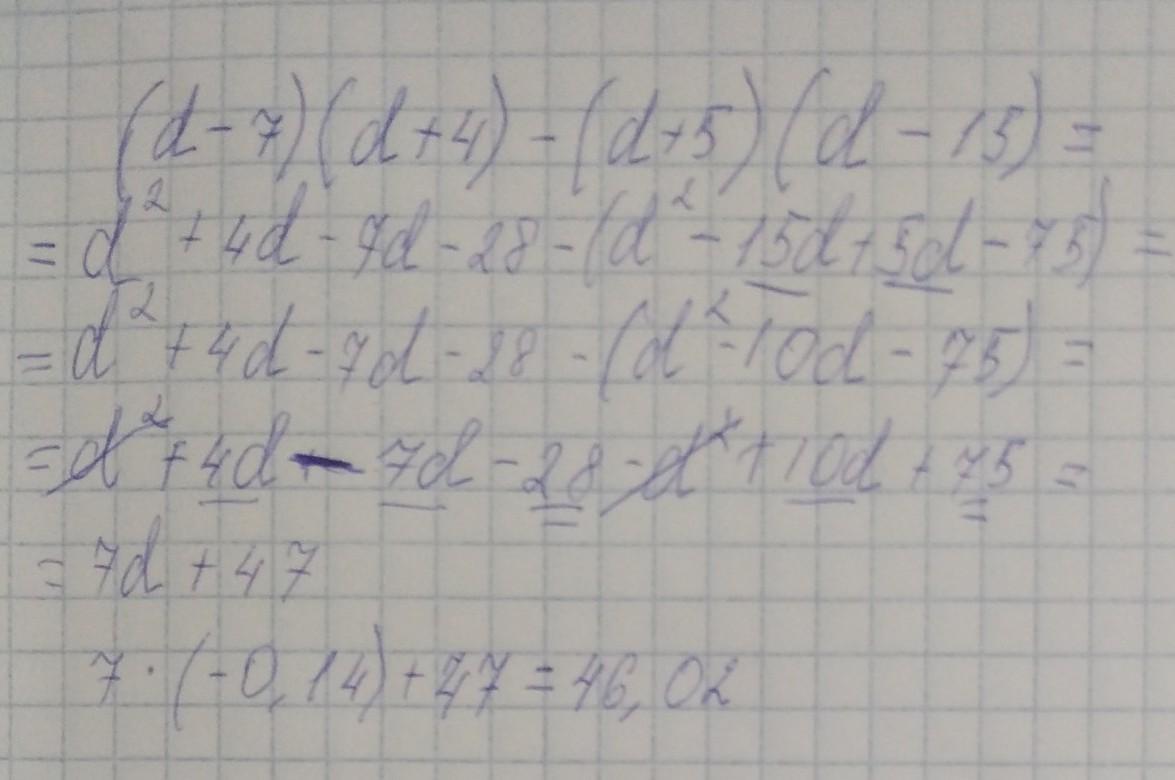 (d-7)(d+4)-(d+5)(d-15)=
=d²+4d-7d-28-(d²-15d+5d-75)=
=d²+4d-7d-28-(d²-10d-75)=
=d²+4d-7d-28-d²+10d+75=
=7d+47
7·(-0,14)+47=46,02